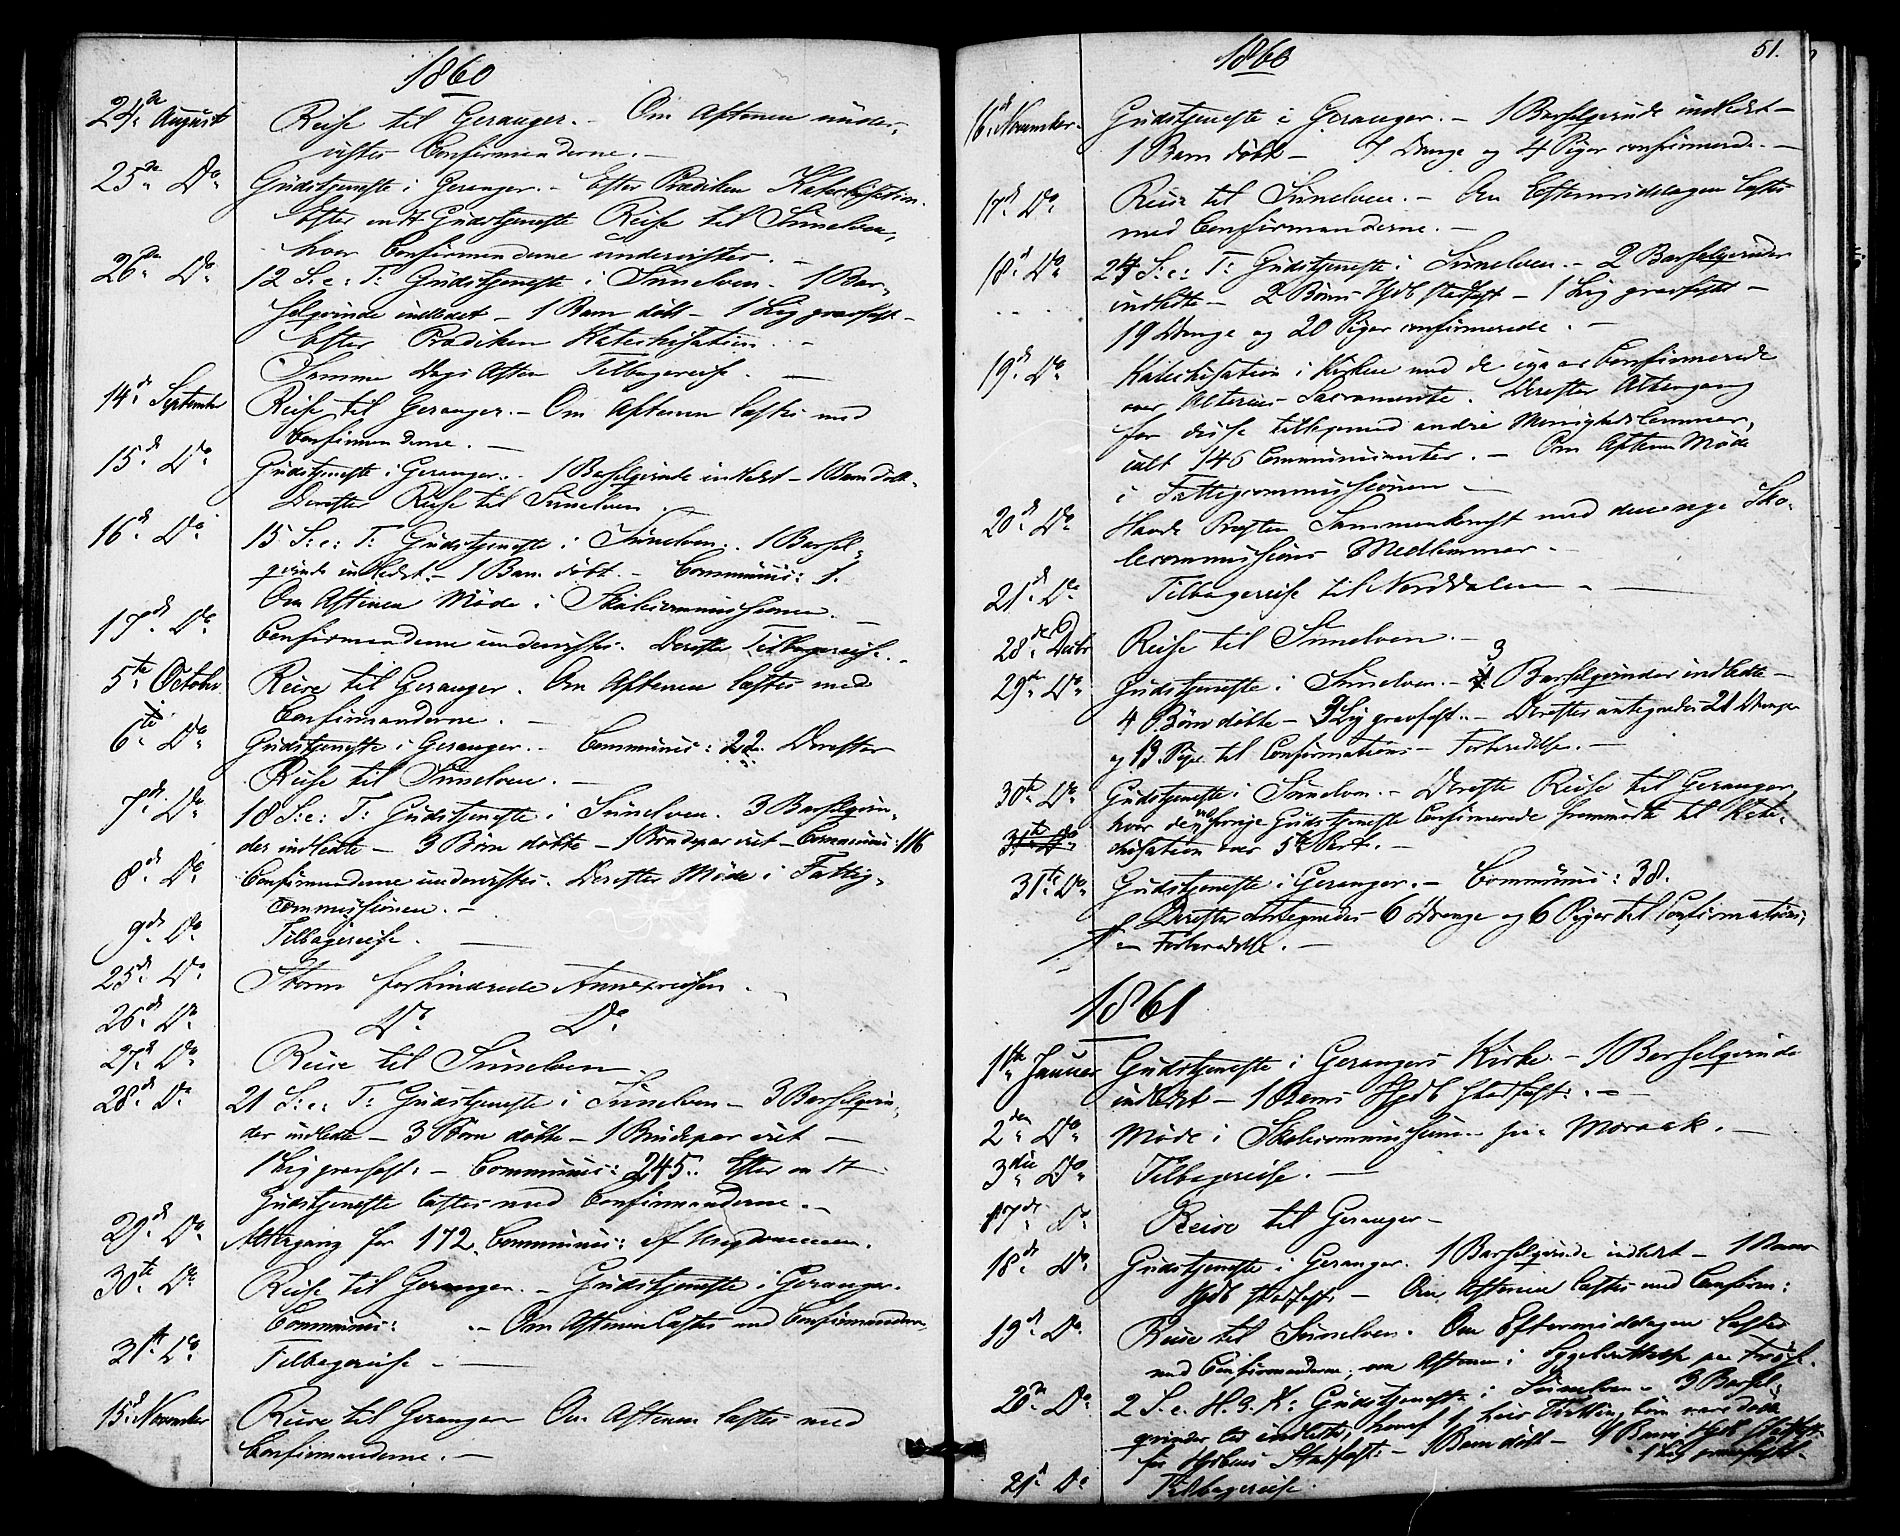 1860
24de August Reise til Geranger. - Om Aftenen under-
vistes Confirmanderne. -
25de Do Gudstjeneste i Geranger. - Efter Prædiken Katechisation.
Efter endt Gudstjeneste Reise til Sunelven,
hvor Confirmanderne undervistes. -
26de Do 12 S: e: T: Gudstjeneste i Sunelven. - 1 Bar-
selqvinde indledet - 1 Barn døbt - 1 Lig gravfæst -
Efter Prædiken Katechisation. -
Samme Dags Aften Tilbagereise. -
14de September Reise til Geranger. - Om Aftenen læstes med
Confirmanderne. -
15de Do Gudstjeneste i Geranger. - 1 Barselqvinde indledet - 1 Barn døbt -
Derefter Reise til Sunelven.
16de Do 15 S: e: T: Gudstjeneste i Sunelven. 1 Barsel-
qvinde indledet. - 1 Barn døbt. - Communic: 1.
Om Aftenen Møde i Skolecommissionen. -
17de Do Confirmanderne undervistes. Derefter Tilbagereise. -
5te October Reise til Geranger. Om Aftenen læstes med
Confirmanderne. -
6te Do Gudstjeneste i Geranger. - Communic: 22. Derefter
Reise til Sunelven. -
7de Do 18 S: e: T: Gudstjeneste i Sunelven. 3 Barselqvin-
der indledte - 3 Børn døbte - 1 Brudepar viet - Communic: 116
8de Do Confirmanderne undervistes. Derefter Møde i Fattig-
commissionen. -
9de Do Tilbagereise. -
25de Do Storm forhindrede Annexreisen.
26de Do Do Do
27de Do Reise til Sunelven.
28de Do 21 S: e: T: Gudstjeneste i Sunelven - 3 Barselqvin-
der indledte - 3 Børn døbte - 1 Brudepar viet -
1 Lig gravfæst: - Communic: 245. Efter endt
Gudstjeneste læstes med Confirmanderne. -
29de Do Altergang for 172 Communic: af Ungdommen.
30te Do Reise til Geranger. - Gudstjeneste i Geranger.
Communic: - Om Aftenen læstes med Confirmanderne,
31te Do Tilbagereise - -
15de November Reise til Geranger Om Aftenen læstes med
Confirmanderne. -
1860
51.
16de November. Gudstjeneste i Geranger. - 1 Barselqvinde indledt -
1 Barn døbt - 7 Drenge og 4 Piger confirmerede. -
17de Do Reise til Sunelven. - Om Eftermiddagen læstes
med Confirmanderne. -
18de Do 24 S: e: T: Gudstjeneste i Sunelven. - 2 Barselqvinder
indledte - 2 Børns Hjdb stadfæst - 1 Lig gravfæstet -
19 Drenge og 20 Piger confirmerede. -
19de Do Katechisation i Kirken med de igaar Confirmerede
over Alterens Sacramente. Derefter Altergang
for disse tilligemed andre Menighedslemmer,
ialt 146 Communicanter. - Om Aftenen Møde
i Fattigcommissionen -
20de Do Havde Præsten Sammenkomst med Sko-
lecommissions Medlemmer. -
21de Do Tilbagereise til Norddalen -
28de Decbr Reise til Sunelven. -
29de Do Gudstjeneste i Sunelven. - 3 Barselqvinder indledte -
4 Børn døbte - 3 Lig gravfæst: - Derefter antegnedes 21 Drenge
og 13 Piger til Confirmations-Forberedelse. -
30te Do Gudstjeneste i Sunelven. - Derefter Reise til Geranger,
hvor de ved forrige Gudstjeneste Confirmerede fremmødte til Kate-
31te Do chisation over 5te Part. -
31te Do Gudstjeneste i Geranger. - Communic: 38.
Derefter antegnedes 6 Drenge og 6 Piger til Confirmations-
Forberedelse. -
1861
1ste Januar Gudstjeneste i Gerangers Kirke - 1 Barselqvinde
indledet - 1 Barns Hjdb stadfæst: -
2den Do Møde i Skolecommissionen paa Maraak. -
3die Do Tilbagereise. -
17de Do Reise til Geranger -
18de Do Gudstjeneste i Geranger. 1 Barselqvinde indledet - 1 Barns
Hjdb stadfæst: - Om Aftenen læstes med Confirm:
19de Do Reise til Sunelven. Om Eftermiddagen læstes
med Confirmanderne, om Aftenen i Sygeberettelse paa
20de Do 2 S. e. H. 3. K: Gudstjeneste i Sunelven - 3 Barsel-
qvinder indledte, hvoraf 1 hvis Tvilling børn vare døde
før Hjdbens Stadfæst: - 1 Barn døbt - 1 Barns Hjdb stadfæst
- 1 Lig gravfæstet -
21de Do Tilbagereise.